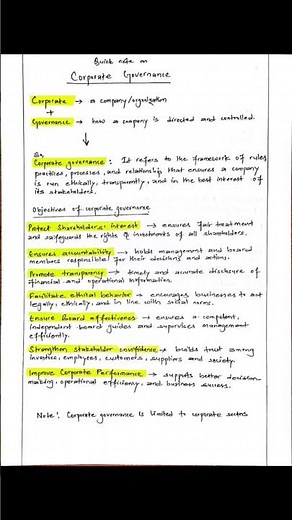 Quick note on
Corporate Governance
Corporate → a company/organization
+
Governance → how a company is directed and controlled.
↓
So,
Corporate governance: It refers to the framework of rules
practices, processes, and relationship that ensures a company
is run ethically, transparently, and in the best interest of
its stakeholders.
Objectives of corporate governance
Protect Shareholders interest → ensures fair treatment
and safeguards the rights & investments of all shareholders.
Ensures accountability → holds management and board
members responsible for their decisions and actions.
Promote transparency → timely and accurate disclosure of
financial and operational information.
Facilitate ethical behavior → encourages businesses to act
legally, ethically, and in line with social norms.
Ensure Board effectiveness → ensures a competent,
independent board guides and supervises management
efficiently.
Strengthen stakeholder confidence → builds trust among
investors, employees, customers, suppliers and society.
Improve Corporate Performance → supports better decision-
making, operational efficiency, and business success.
Note: Corporate governance is limited to corporate sectors